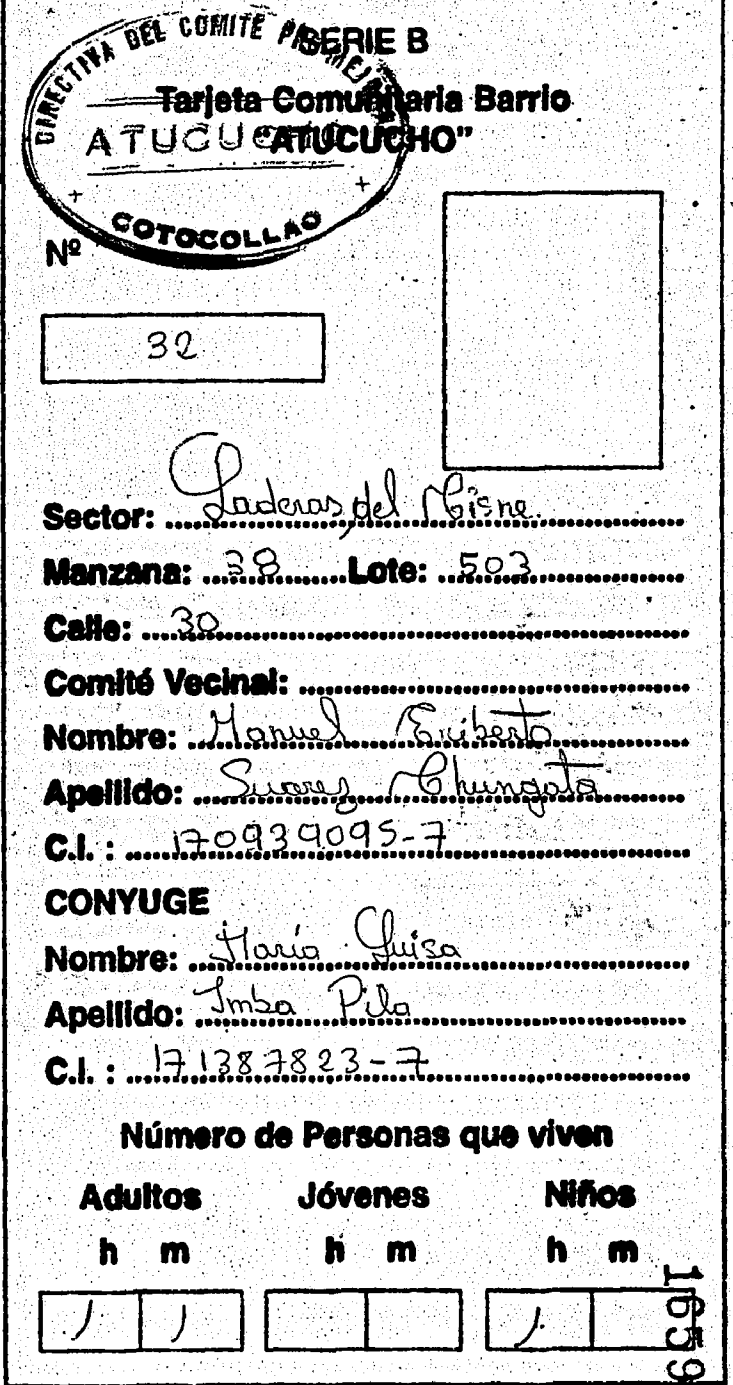 DIRECTIVA DEL COMITÉ MEJORAS
SERIE B
Tarjeta Comunitaria Barrio
ATUCUCHO
"ATUCUCHO"
COTOCOLLAO
Nº
32
Sector: Laderas del Cisne
Manzana: 38 Lote: 503
Calle: 30
Comité Vecinal:
Nombre: Manuel Eriberto
Apellido: Suarez Chungata
C.I. : 170939095-7
CONYUGE
Nombre: María Luisa
Apellido: Imba Pila
C.I. : 171387823-7
Número de Personas que viven
Adultos Jóvenes Niños
h m h m h m
1 1 1
1659